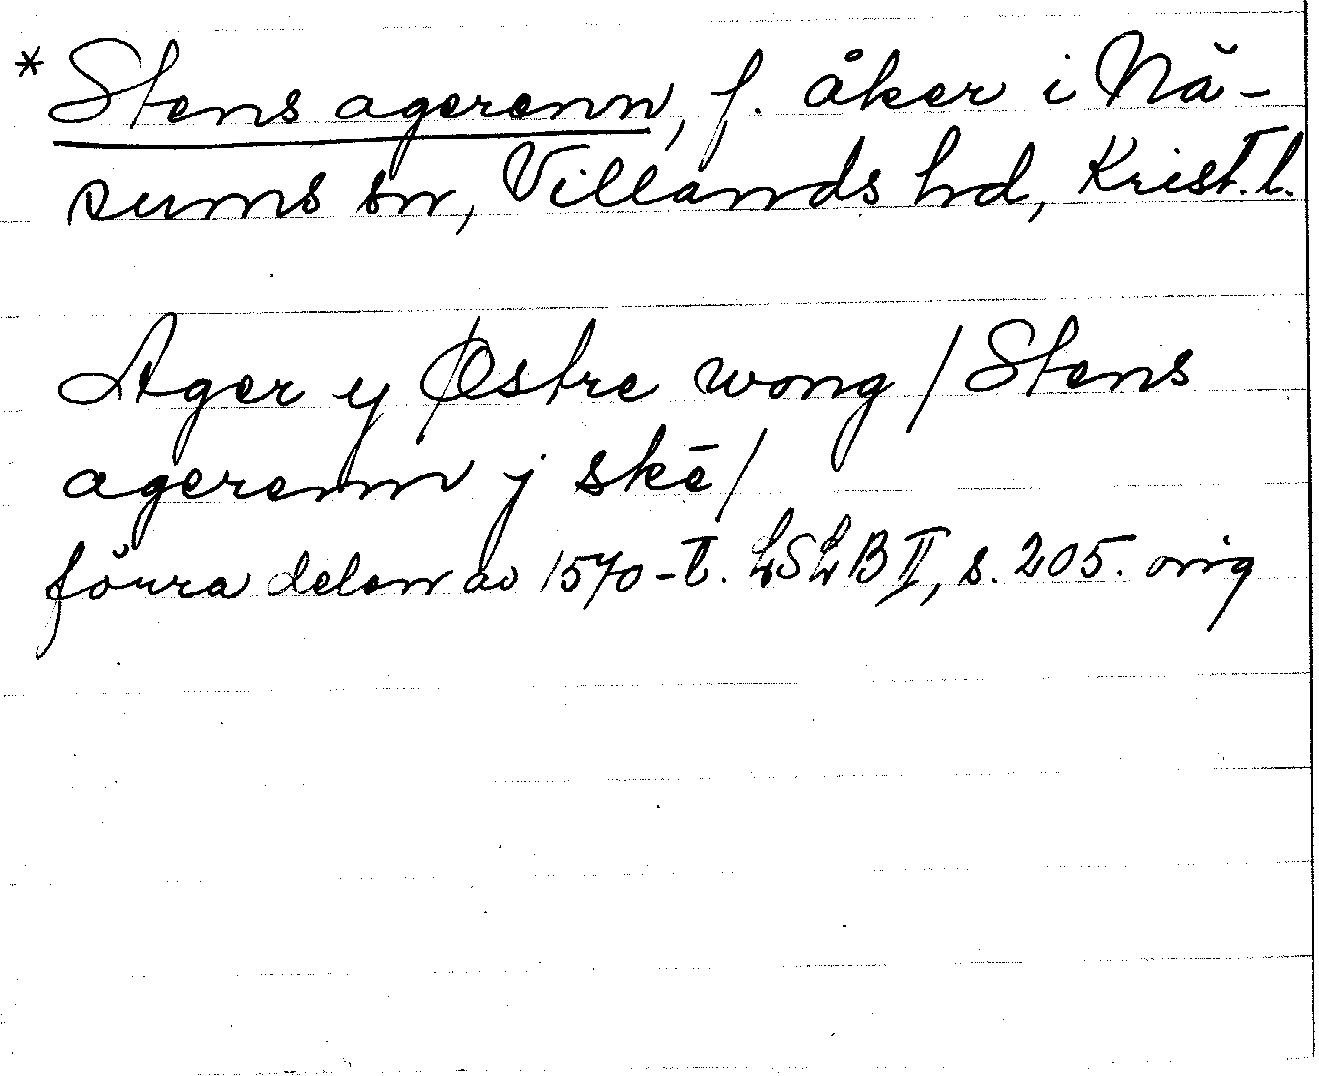 * Stens agerenn, f. åker i Nä-
sums sn, Villands hd, Krist. l.
Ager y Østre wong / Stens
agerenn j skē /
förra delen av 1570-t. LSLB II, s. 205. orig